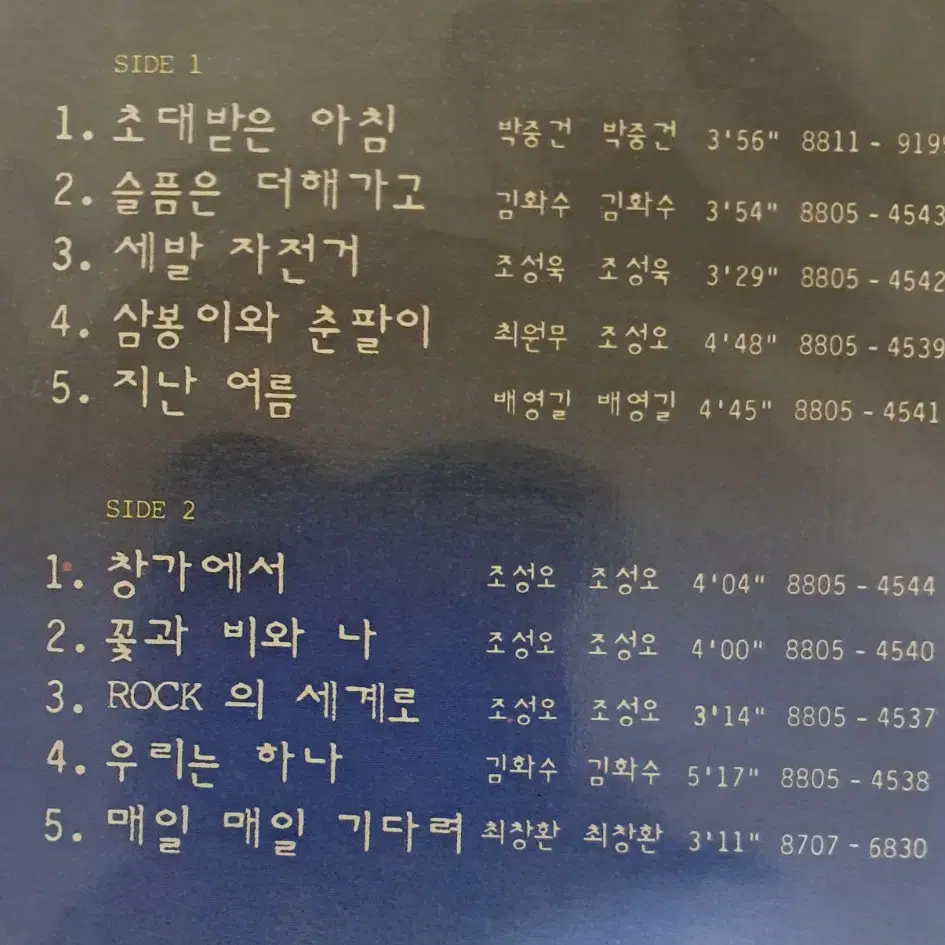 SIDE 1
1. 초대받은 아침 박중건 박중건 3'56" 8811 - 919
2. 슬픔은 더해가고 김화수 김화수 3'54" 8805 - 4543
3. 세발 자전거 조성욱 조성욱 3'29" 8805 - 4542
4. 삼봉이와 춘팔이 최원무 조성오 4'48" 8805 - 4539
5. 지난 여름 배영길 배영길 4'45" 8805 - 4541
SIDE 2
1. 창가에서 조성오 조성오 4'04" 8805 - 4544
2. 꽃과 비와 나 조성오 조성오 4'00" 8805 - 4540
3. ROCK 의 세계로 조성오 조성오 3'14" 8805 - 4537
4. 우리는 하나 김화수 김화수 5'17" 8805 - 4538
5. 매일 매일 기다려 최창환 최창환 3'11" 8707 - 6830